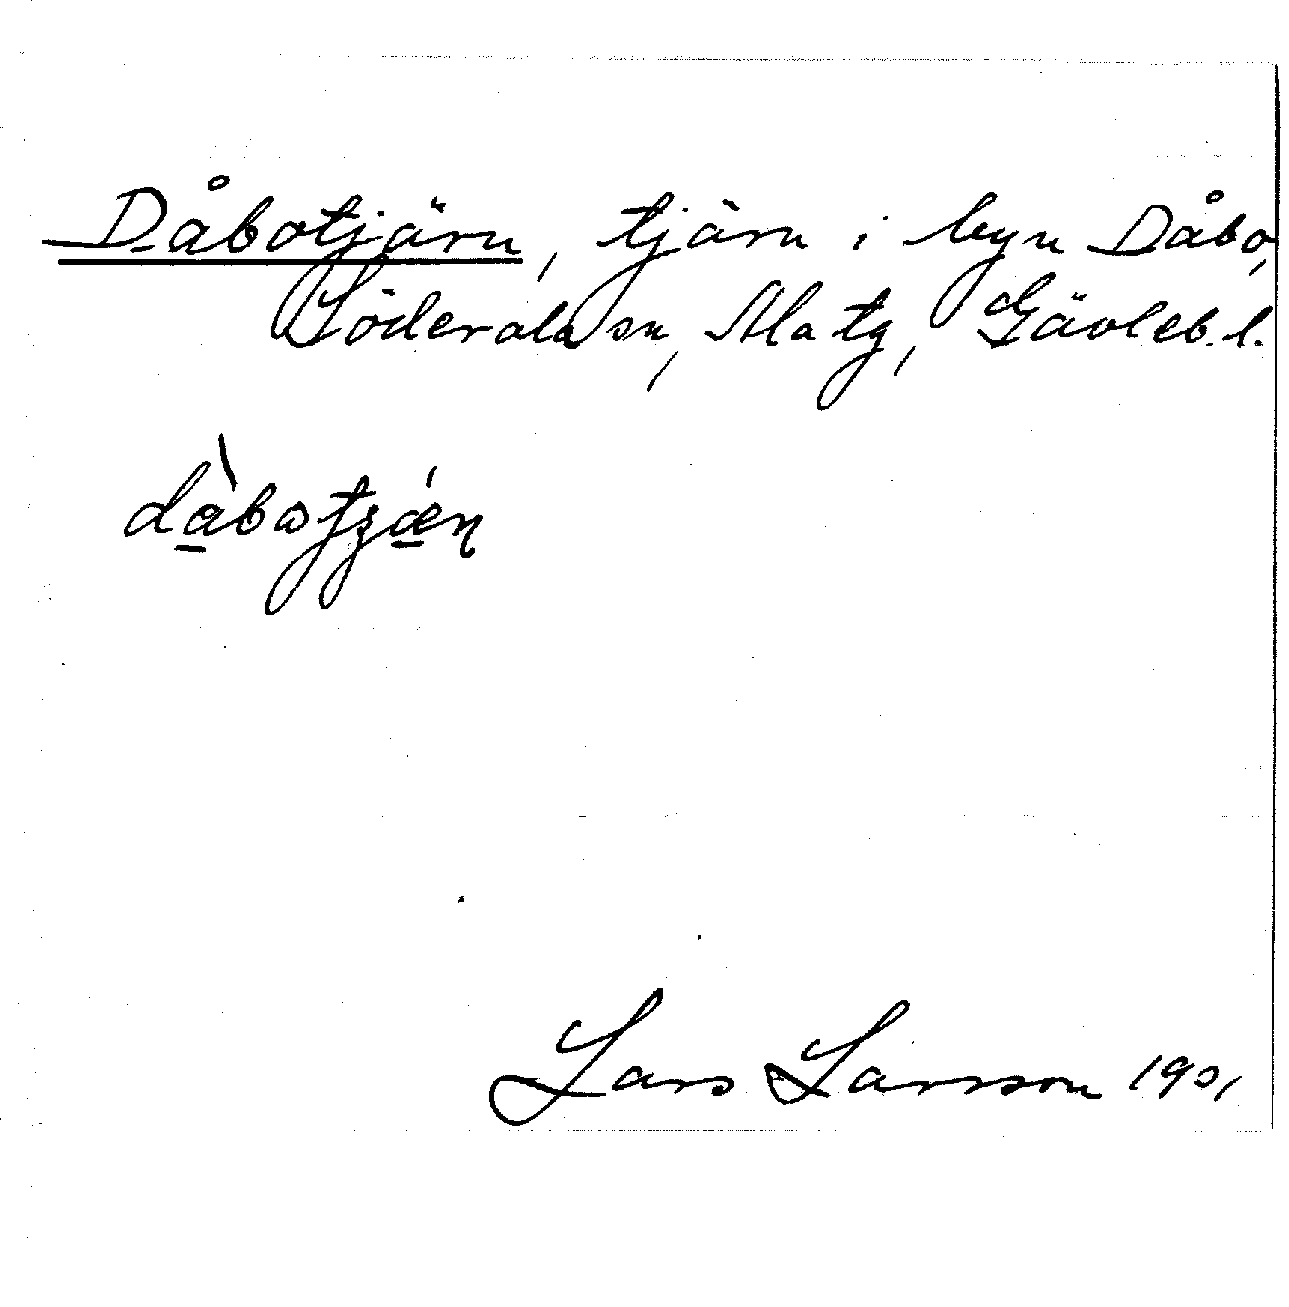 Dåbotjärn, tjärn i byn Dåbo,
Söderala sn, Ala tg, Gävleb. l.
dàbotʒǽɳ
Lars Larsson 1901